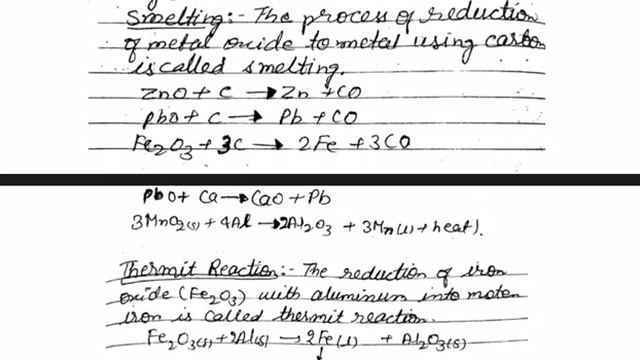 Smelting:- The process of reduction
of metal oxide to metal using carbon
is called smelting.
ZnO + C → Zn + CO
PbO + C → Pb + CO
Fe₂O₃ + 3C → 2Fe + 3CO
PbO + Ca → CaO + Pb
3MnO₂(s) + 4Al → 2Al₂O₃ + 3Mn(l) + heat).
Thermit Reaction:- The reduction of iron
oxide (Fe₂O₃) with aluminum into moten
iron is called thermit reaction.
Fe₂O₃(s) + 2Al(s) → 2Fe(l) + Al₂O₃(s)
↓